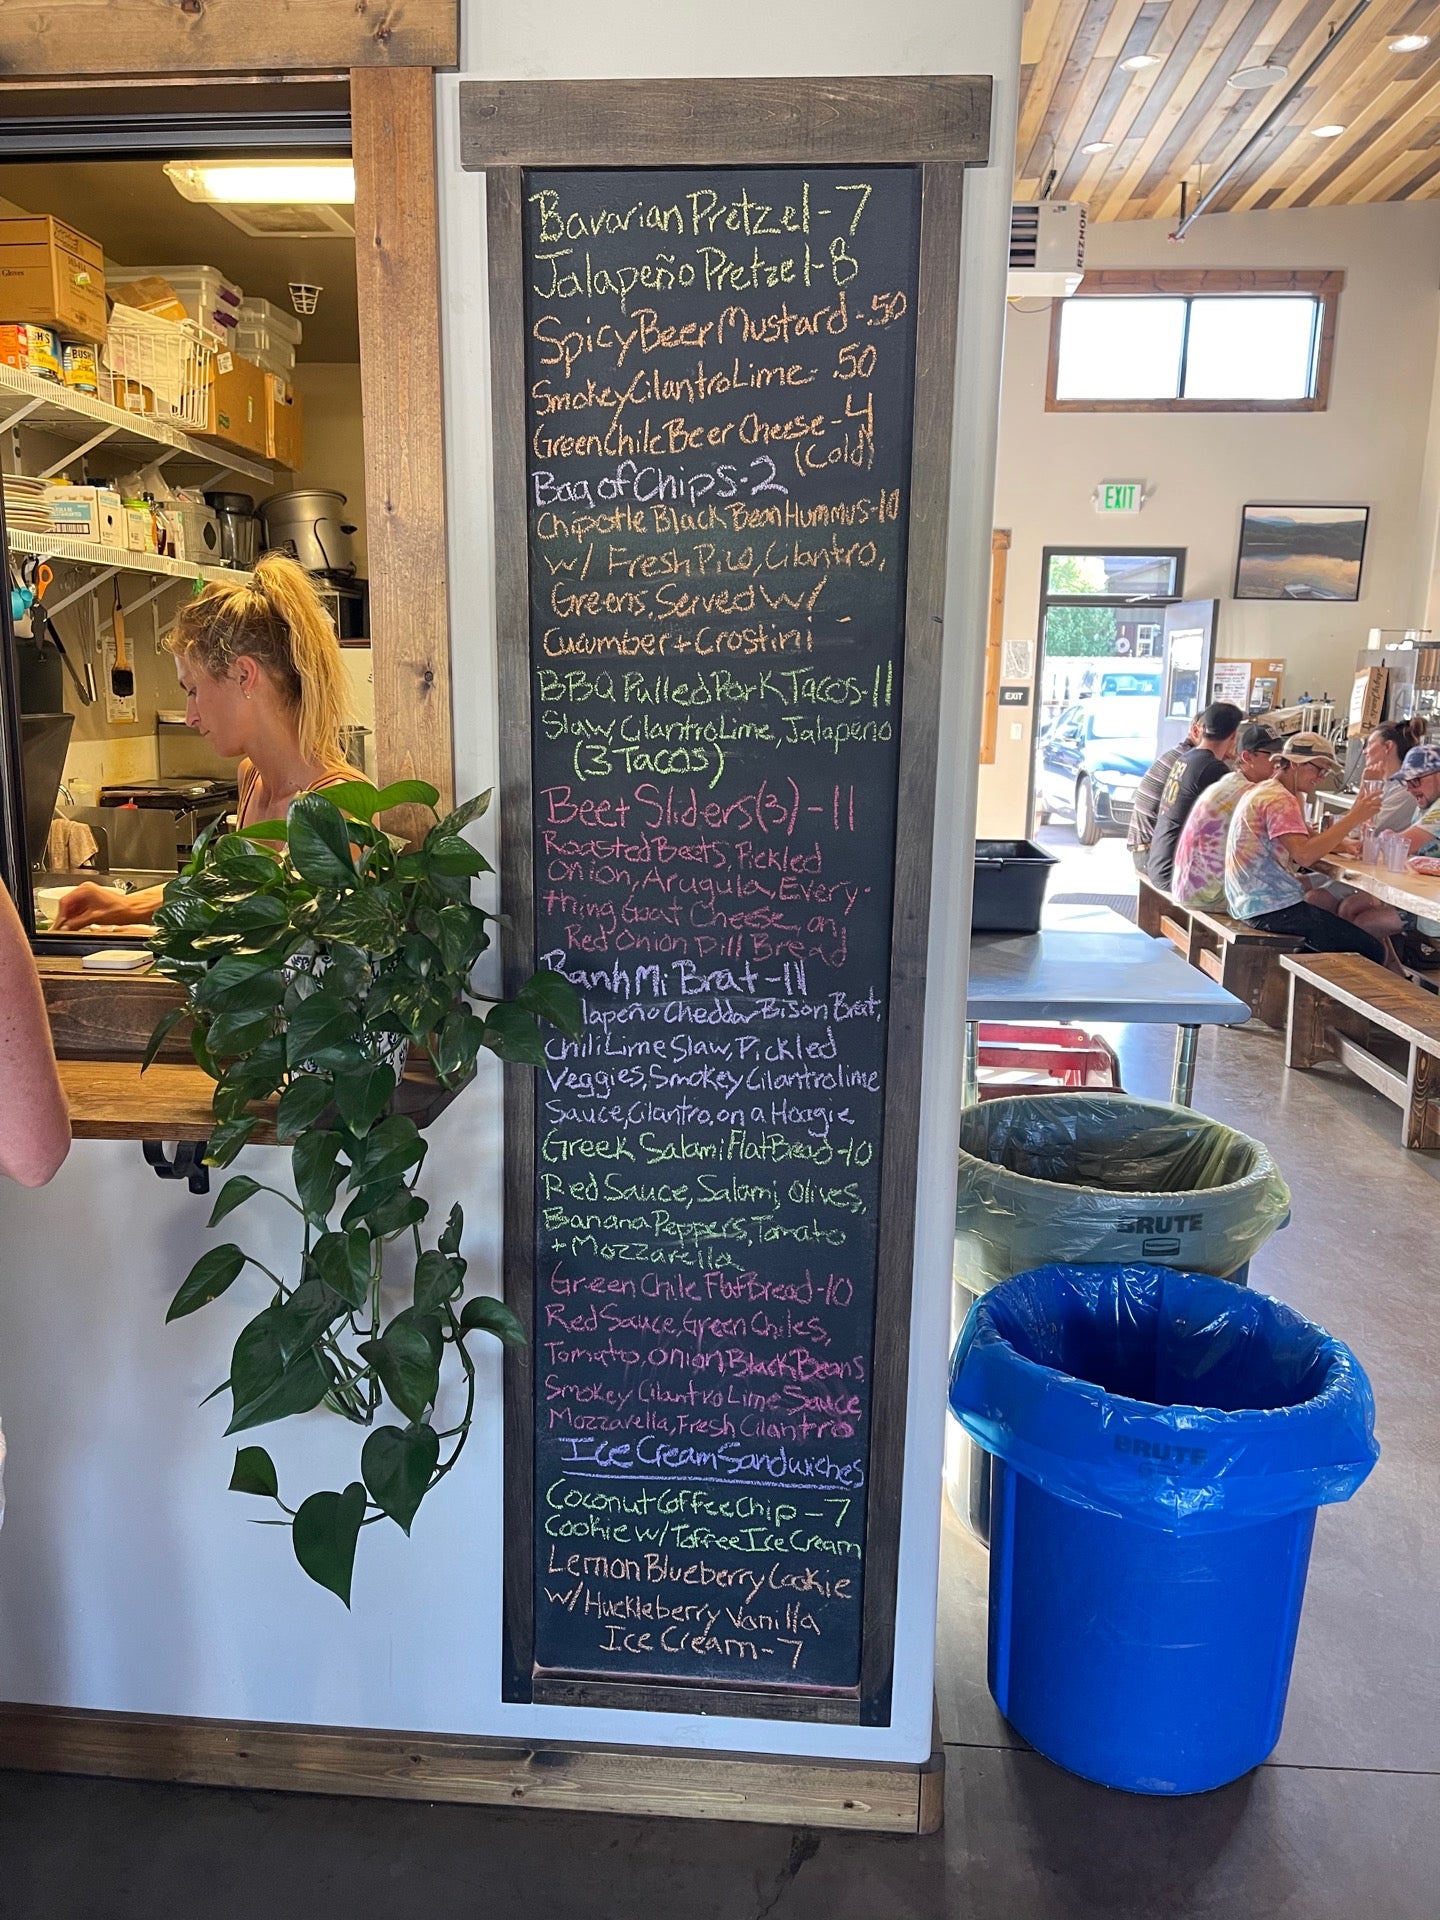 Bavarian Pretzel - 7
Jalapeño Pretzel - 8
Spicy Beer Mustard - .50
Smokey Cilantro Lime - .50
Green Chile Beer Cheese - 4
(Cold)
Bag of Chips - 2
Chipotle Black Bean Hummus - 10
w/ Fresh Pico, Cilantro,
Greens, Served w/
Cucumber + Crostini -
BBQ Pulled Pork Tacos - 11
Slaw, Cilantro Lime, Jalapeño
(3 Tacos)
Beet Sliders (3) - 11
Roasted Beets, Pickled
Onion, Arugula, Every-
thing Goat Cheese, on
Red Onion Dill Bread
Banh Mi Brat - 11
lapeño Cheddar Bison Brat,
Chili Lime Slaw, Pickled
Veggies, Smokey Cilantro lime
Sauce, Cilantro, on a Hoagie
Greek Salami Flat Bread - 10
Red Sauce, Salami, Olives,
Banana Peppers, Tomato
+ Mozzarella
Green Chile Flat Bread - 10
Red Sauce, Green Chiles,
Tomato, Onion, Black Beans,
Smokey Cilantro Lime Sauce,
Mozzarella, Fresh Cilantro
Ice Cream Sandwiches
Coconut Coffee Chip - 7
Cookie w/ Toffee Ice Cream
Lemon Blueberry Cookie
w/ Huckleberry Vanilla
Ice Cream - 7
Gloves
BUSH'S
REZNOR
EXIT
EXIT
BRUTE
BRUTE